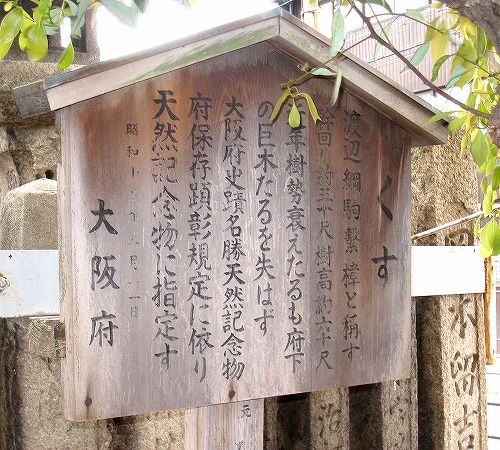 くす
渡辺綱駒繫樟と称す
幹回り約三十尺樹高約六十尺
年樹勢衰えたるも府下
の巨木たるを失はず
大阪府史蹟名勝天然記念物
府保存顕彰規定に依り
天然記念物に指定す
昭和十 年 月 日
大阪府
元
治
留吉